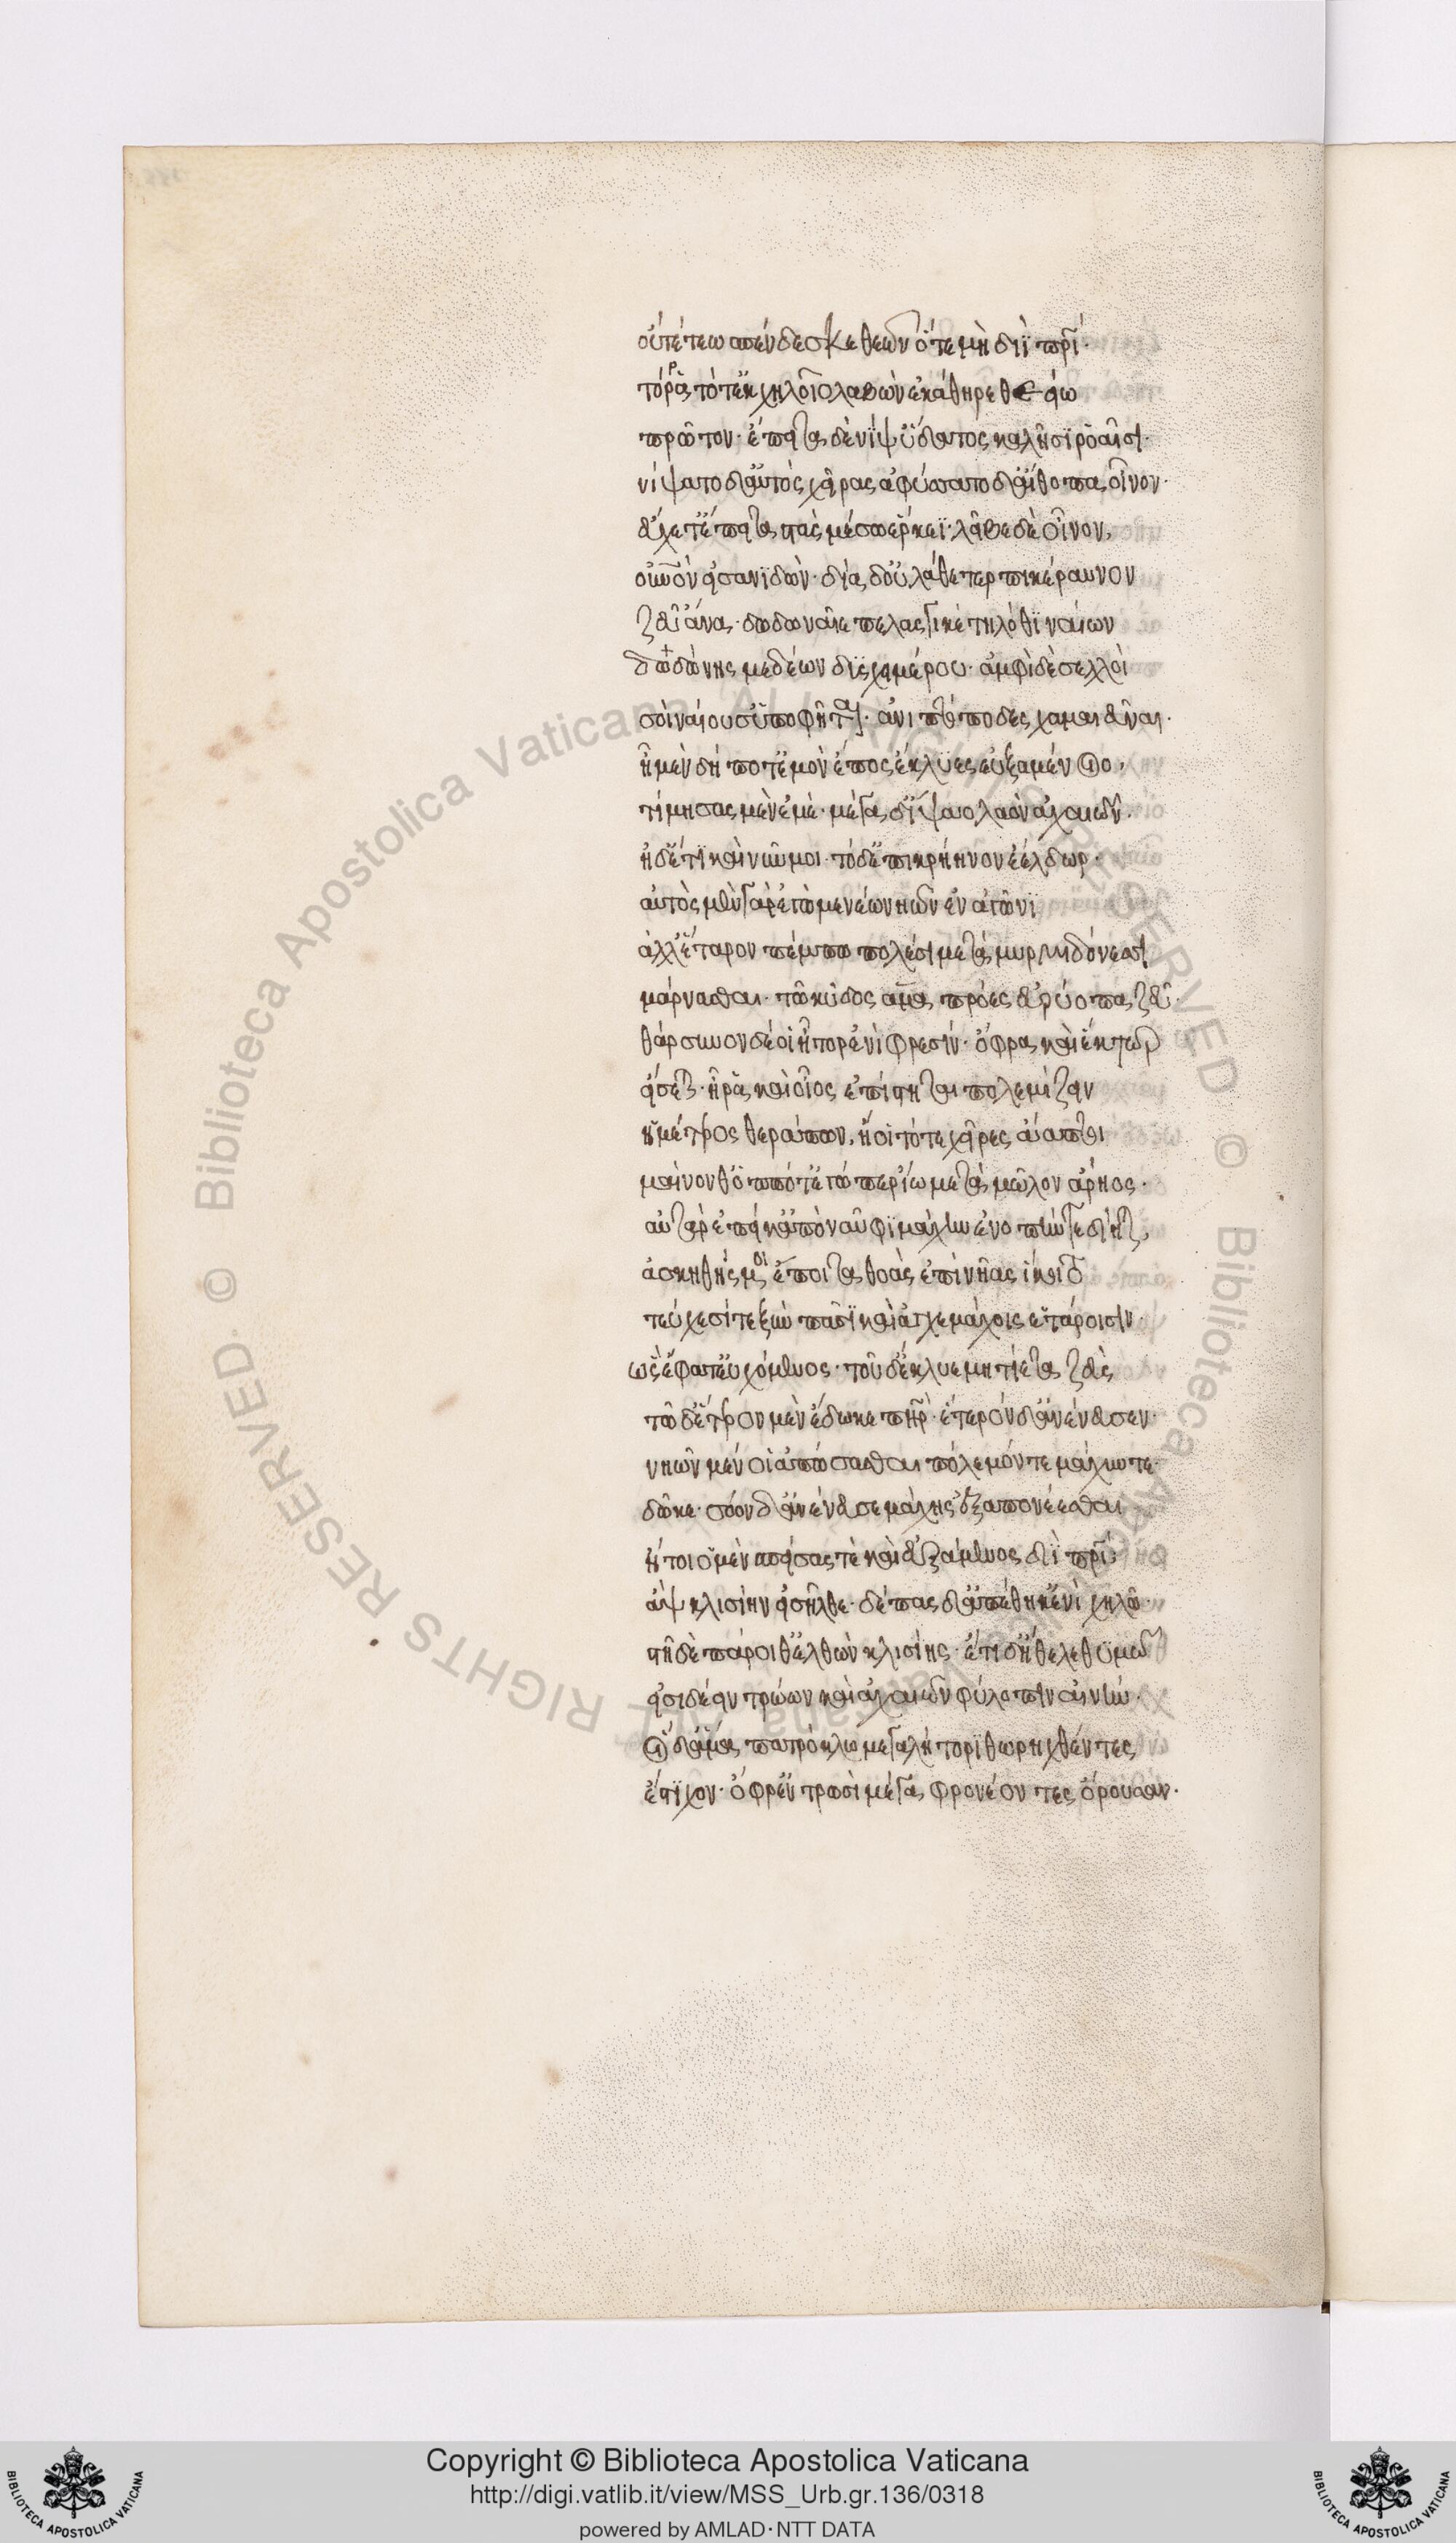 οὔτέ τεω σπένδεσκε θεῶν ὅτε μὴ διῒ πατρί·
τό ῥα τότ' ἐκ χηλοῖο λαβὼν ἐκάθηρε θεείω
πρῶτον· ἔπειτα δὲ νίψ' ὕδατος καλῇσι ῥοῇσι·
νίψατο δ' αὐτὸς χεῖρας ἀφύσσατο δ' αἴθοπα οἶνον·
εὔχετ' ἔπειτα στὰς μέσω ἕρκεϊ· λεῖβε δὲ οἶνον,
οὐρανὸν εἰσανιδών· δία δ' οὐ λάθε τερπικέραυνον
ζεῦ ἄνα· δωδωναῖε πελασγικὲ τηλόθι ναίων
δωδώνης μεδέων δυσχειμέρου· ἀμφὶ δὲ σελλοὶ
σοὶ ναίουσ' ὑποφῆται· ἀνιπτόποδες χαμαιεῦναι·
ἠμὲν δή ποτ' ἐμὸν ἔπος ἔκλυες εὐξαμένοιο,
τίμησας μὲν ἐμὲ· μέγα δ' ἴψαο λαὸν ἀχαιῶν·
ἠδ' ἔτι καὶ νῦν μοι τόδ' ἐπικρήηνον ἐέλδωρ·
αὐτὸς μὲν γὰρ ἐγὼ μενέω νηῶν ἐν ἀγῶνι
ἀλλ' ἕταρον πέμπω πολέσι μετὰ μυρμιδόνεσσι
μάρνασθαι· τῶ κῦδος ἅμα πρόες εὐρύοπα ζεῦ·
θάρσυνον δέ οἱ ἦτορ ἐνὶ φρεσίν· ὄφρα καὶ ἕκτωρ
εἴσεται· ἤ ῥα καὶ οἶος ἐπίστηται πολεμίζειν
ἡμέτερος θεράπων, ἤ οἱ τότε χεῖρες ἄαπτοι
μαίνονθ' ὁππότ' ἐγώ περ ἴω μετὰ μῶλον ἄρηος·
αὐτὰρ ἐπεί κ' ἀπὸ ναῦφι μάχην ἐνοπήν τε δίηται,
ἀσκηθής μοι ἔποιτα θοὰς ἐπὶ νῆας ἵκοιτο
τεύχεσί τε ξὺν πᾶσι καὶ ἀγχεμάχοις ἑτάροισιν·
ὣς ἔφατ' εὐχόμενος· τοῦ δ' ἔκλυε μητίετα ζεὺς
τῶ δ' ἕτερον μὲν ἔδωκε πατήρ· ἕτερον δ' ἀνένευσεν·
νηῶν μέν οἱ ἀπώσασθαι πόλεμόν τε μάχην τε
δῶκε· σόον δ' ἀνένευσε μάχης ἐξαπονέεσθαι
ἤτοι ὁ μὲν σπείσας τὲ καὶ εὐξάμενος διῒ πατρί·
ἂψ κλισίην εἰσῆλθε· δέπας δ' ἀπέθηκ' ἐνὶ χηλῶ·
στῆ δὲ πάροιθ' ἐλθὼν κλισίης· ἔτι δ' ἤθελε θυμῶ
εἰσιδέειν τρώων καὶ ἀχαιῶν φύλοπιν αἰνήν·
οἳ δ' ἅμα πατρόκλω μεγαλήτορι θωρηχθέντες
ἔστιχον· ὄφρ' ἐν τρωσὶ μέγα φρονέοντες ὄρουσαν·
Copyright © Biblioteca Apostolica Vaticana
http://digi.vatlib.it/view/MSS_Urb.gr.136/0318
powered by AMLAD·NTT DATA